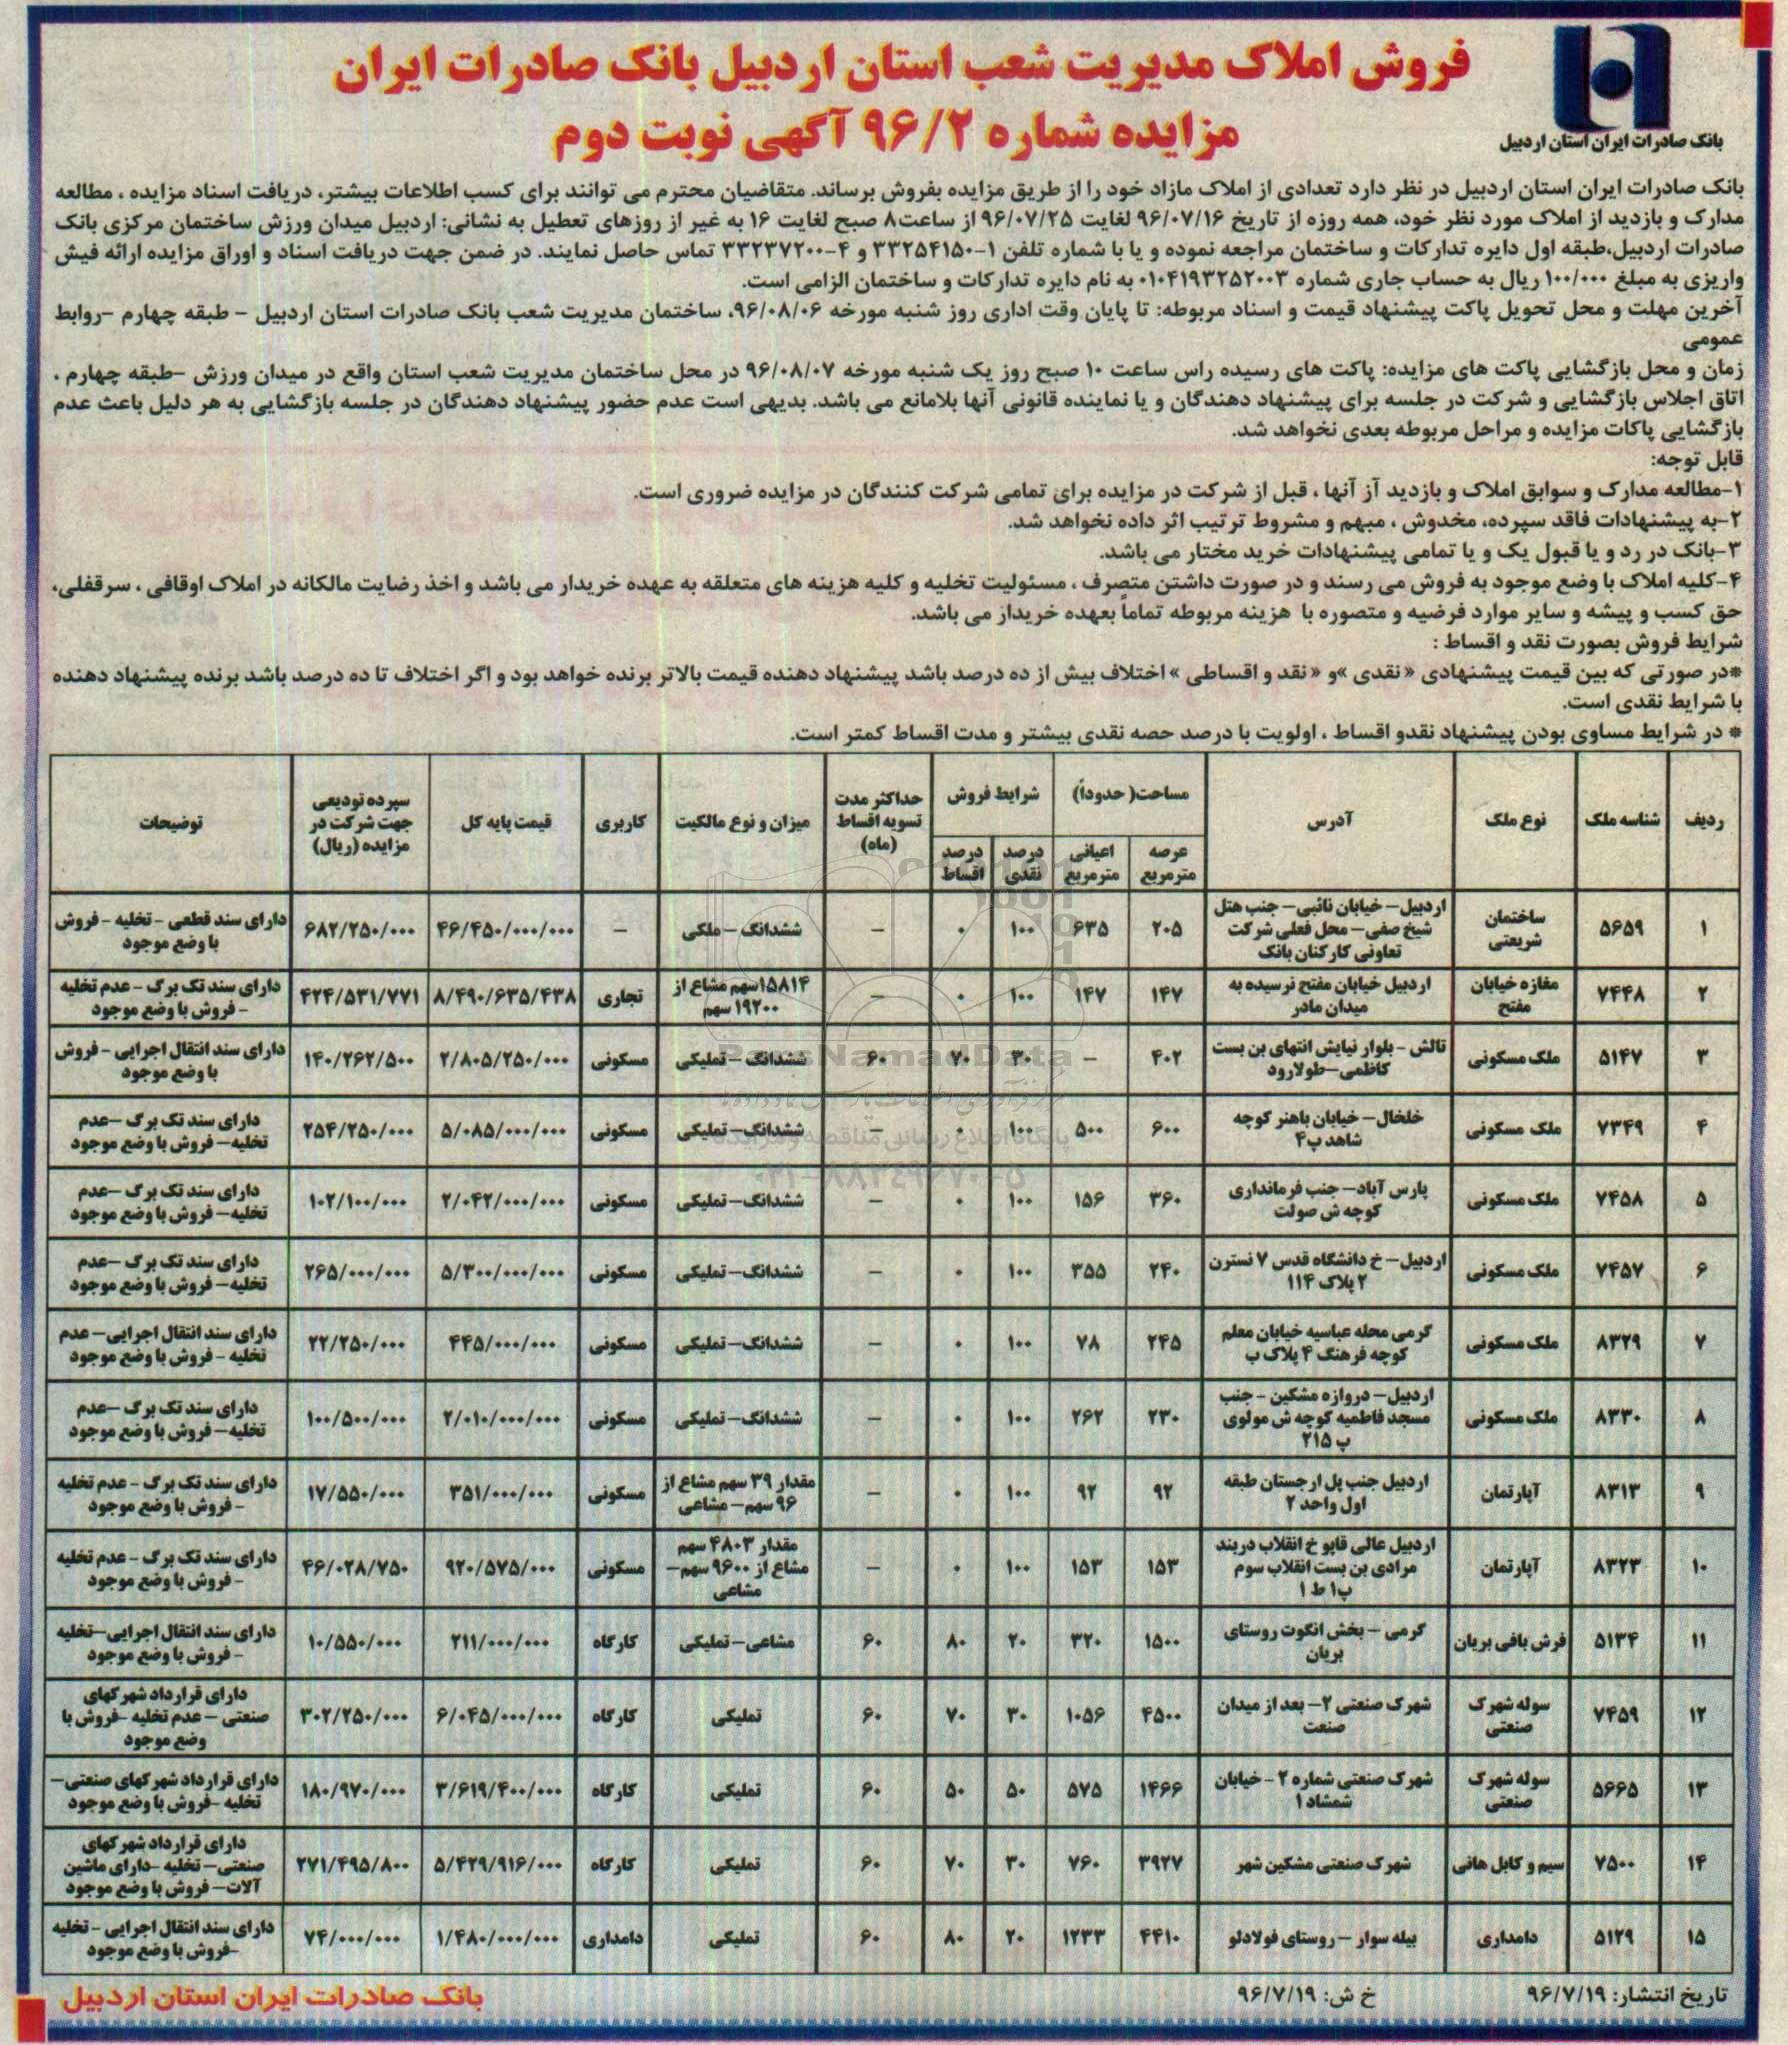 فروش املاک مدیریت شعب استان اردبیل بانک صادرات ایران
مزایده شماره ۹۶/۲ آگهی نوبت دوم
بانک صادرات ایران استان اردبیل
بانک صادرات ایران استان اردبیل در نظر دارد تعدادی از املاک مازاد خود را از طریق مزایده بفروش برساند. متقاضیان محترم می توانند برای کسب اطلاعات بیشتر، دریافت اسناد مزایده ، مطالعه
مدارک و بازدید از املاک مورد نظر خود، همه روزه از تاریخ ۹۶/۰۷/۱۶ لغایت ۹۶/۰۷/۲۵ از ساعت۸ صبح لغایت ۱۶ به غیر از روزهای تعطیل به نشانی: اردبیل میدان ورزش ساختمان مرکزی بانک
صادرات اردبیل،طبقه اول دایره تدارکات و ساختمان مراجعه نموده و یا با شماره تلفن ۱-۳۳۲۵۴۱۵۰ و ۴-۳۳۲۳۷۲۰۰ تماس حاصل نمایند. در ضمن جهت دریافت اسناد و اوراق مزایده ارائه فیش
واریزی به مبلغ ۱۰۰/۰۰۰ ریال به حساب جاری شماره ۰۱۰۴۱۹۳۲۵۲۰۰۳ به نام دایره تدارکات و ساختمان الزامی است.
آخرین مهلت و محل تحویل پاکت پیشنهاد قیمت و اسناد مربوطه: تا پایان وقت اداری روز شنبه مورخه ۹۶/۰۸/۰۶، ساختمان مدیریت شعب بانک صادرات استان اردبیل – طبقه چهارم –روابط
عمومی
زمان و محل بازگشایی پاکت های مزایده: پاکت های رسیده راس ساعت ۱۰ صبح روز یک شنبه مورخه ۹۶/۰۸/۰۷ در محل ساختمان مدیریت شعب استان واقع در میدان ورزش –طبقه چهارم ،
اتاق اجلاس بازگشایی و شرکت در جلسه برای پیشنهاد دهندگان و یا نماینده قانونی آنها بلامانع می باشد. بدیهی است عدم حضور پیشنهاد دهندگان در جلسه بازگشایی به هر دلیل باعث عدم
بازگشایی پاکات مزایده و مراحل مربوطه بعدی نخواهد شد.
قابل توجه:
۱–مطالعه مدارک و سوابق املاک و بازدید از آنها ، قبل از شرکت در مزایده برای تمامی شرکت کنندگان در مزایده ضروری است.
۲–به پیشنهادات فاقد سپرده، مخدوش ، مبهم و مشروط ترتیب اثر داده نخواهد شد.
۳–بانک در رد و یا قبول یک و یا تمامی پیشنهادات خرید مختار می باشد.
۴–کلیه املاک با وضع موجود به فروش می رسند و در صورت داشتن متصرف ، مسئولیت تخلیه و کلیه هزینه های متعلقه به عهده خریدار می باشد و اخذ رضایت مالکانه در املاک اوقافی ، سرقفلی،
حق کسب و پیشه و سایر موارد فرضیه و متصوره با هزینه مربوطه تماماً بعهده خریدار می باشد.
شرایط فروش بصورت نقد و اقساط :
*در صورتی که بین قیمت پیشنهادی «نقدی »و «نقد و اقساطی » اختلاف بیش از ده درصد باشد پیشنهاد دهنده قیمت بالاتر برنده خواهد بود و اگر اختلاف تا ده درصد باشد برنده پیشنهاد دهنده
با شرایط نقدی است.
* در شرایط مساوی بودن پیشنهاد نقدو اقساط ، اولویت با درصد حصه نقدی بیشتر و مدت اقساط کمتر است.
ردیف | شناسه ملک | نوع ملک | آدرس | مساحت( حدوداً) عرصه مترمربع | اعیانی مترمربع | شرایط فروش درصد نقدی | درصد اقساط | حداکثر مدت تسویه اقساط (ماه) | میزان و نوع مالکیت | کاربری | قیمت پایه کل | سپرده تودیعی جهت شرکت در مزایده (ریال) | توضیحات
۱ | ۵۶۵۹ | ساختمان شریعتی | اردبیل– خیابان نائبی– جنب هتل شیخ صفی– محل فعلی شرکت تعاونی کارکنان بانک | ۲۰۵ | ۶۳۵ | ۱۰۰ | ۰ | – | ششدانگ –ملکی | – | ۴۶/۴۵۰/۰۰۰/۰۰۰ | ۶۸۲/۲۵۰/۰۰۰ | دارای سند قطعی – تخلیه – فروش با وضع موجود
۲ | ۷۴۴۸ | مغازه خیابان مفتح | اردبیل خیابان مفتح نرسیده به میدان مادر | ۱۴۷ | ۱۴۷ | ۱۰۰ | ۰ | – | ۱۵۸۱۴سهم مشاع از ۱۹۲۰۰ سهم | تجاری | ۸/۴۹۰/۶۳۵/۴۳۸ | ۴۲۴/۵۳۱/۷۷۱ | دارای سند تک برگ – عدم تخلیه – فروش با وضع موجود
۳ | ۵۱۴۷ | ملک مسکونی | تالش – بلوار نیایش انتهای بن بست کاظمی–طولارود | ۴۰۲ | – | ۳۰ | ۷۰ | ۶۰ | ششدانگ –تملیکی | مسکونی | ۲/۸۰۵/۲۵۰/۰۰۰ | ۱۴۰/۲۶۲/۵۰۰ | دارای سند انتقال اجرایی – فروش با وضع موجود
۴ | ۷۳۴۹ | ملک مسکونی | خلخال– خیابان باهنر کوچه شاهد پ۴ | ۶۰۰ | ۵۰۰ | ۱۰۰ | ۰ | – | ششدانگ– تملیکی | مسکونی | ۵/۰۸۵/۰۰۰/۰۰۰ | ۲۵۴/۲۵۰/۰۰۰ | دارای سند تک برگ –عدم تخلیه– فروش با وضع موجود
۵ | ۷۴۵۸ | ملک مسکونی | پارس آباد– جنب فرمانداری کوچه ش صولت | ۳۶۰ | ۱۵۶ | ۱۰۰ | ۰ | – | ششدانگ– تملیکی | مسکونی | ۲/۰۴۲/۰۰۰/۰۰۰ | ۱۰۲/۱۰۰/۰۰۰ | دارای سند تک برگ –عدم تخلیه– فروش با وضع موجود
۶ | ۷۴۵۷ | ملک مسکونی | اردبیل– خ دانشگاه قدس ۷ نسترن ۲ پلاک ۱۱۴ | ۲۴۰ | ۳۵۵ | ۱۰۰ | ۰ | – | ششدانگ– تملیکی | مسکونی | ۵/۳۰۰/۰۰۰/۰۰۰ | ۲۶۵/۰۰۰/۰۰۰ | دارای سند تک برگ –عدم تخلیه– فروش با وضع موجود
۷ | ۸۳۲۹ | ملک مسکونی | گرمی محله عباسیه خیابان معلم کوچه فرهنگ ۴ پلاک ب | ۲۴۵ | ۷۸ | ۱۰۰ | ۰ | – | ششدانگ– تملیکی | مسکونی | ۴۴۵/۰۰۰/۰۰۰ | ۲۲/۲۵۰/۰۰۰ | دارای سند انتقال اجرایی– عدم تخلیه – فروش با وضع موجود
۸ | ۸۳۳۰ | ملک مسکونی | اردبیل– دروازه مشکین – جنب مسجد فاطمیه کوچه ش مولوی پ ۲۱۵ | ۲۳۰ | ۲۶۲ | ۱۰۰ | ۰ | – | ششدانگ– تملیکی | مسکونی | ۲/۰۱۰/۰۰۰/۰۰۰ | ۱۰۰/۵۰۰/۰۰۰ | دارای سند تک برگ –عدم تخلیه– فروش با وضع موجود
۹ | ۸۳۱۳ | آپارتمان | اردبیل جنب پل ارجستان طبقه اول واحد ۲ | ۹۲ | ۹۲ | ۱۰۰ | ۰ | – | مقدار ۳۹ سهم مشاع از ۹۶ سهم– مشاعی | مسکونی | ۳۵۱/۰۰۰/۰۰۰ | ۱۷/۵۵۰/۰۰۰ | دارای سند تک برگ – عدم تخلیه – فروش با وضع موجود
۱۰ | ۸۳۲۳ | آپارتمان | اردبیل عالی قاپو خ انقلاب دربند مرادی بن بست انقلاب سوم پ۱ ط ۱ | ۱۵۳ | ۱۵۳ | ۱۰۰ | ۰ | – | مقدار ۴۸۰۳ سهم مشاع از ۹۶۰۰ سهم– مشاعی | مسکونی | ۹۲۰/۵۷۵/۰۰۰ | ۴۶/۰۲۸/۷۵۰ | دارای سند تک برگ – عدم تخلیه – فروش با وضع موجود
۱۱ | ۵۱۳۴ | فرش بافی بریان | گرمی – بخش انگوت روستای بریان | ۱۵۰۰ | ۳۲۰ | ۲۰ | ۸۰ | ۶۰ | مشاعی– تملیکی | کارگاه | ۲۱۱/۰۰۰/۰۰۰ | ۱۰/۵۵۰/۰۰۰ | دارای سند انتقال اجرایی–تخلیه – فروش با وضع موجود
۱۲ | ۷۴۵۹ | سوله شهرک صنعتی | شهرک صنعتی ۲– بعد از میدان صنعت | ۴۵۰۰ | ۱۰۵۶ | ۳۰ | ۷۰ | ۶۰ | تملیکی | کارگاه | ۶/۰۴۵/۰۰۰/۰۰۰ | ۳۰۲/۲۵۰/۰۰۰ | دارای قرارداد شهرکهای صنعتی – عدم تخلیه –فروش با وضع موجود
۱۳ | ۵۶۶۵ | سوله شهرک صنعتی | شهرک صنعتی شماره ۲ – خیابان شمشاد ۱ | ۱۴۶۶ | ۵۷۵ | ۵۰ | ۵۰ | ۶۰ | تملیکی | کارگاه | ۳/۶۱۹/۴۰۰/۰۰۰ | ۱۸۰/۹۷۰/۰۰۰ | دارای قرارداد شهرکهای صنعتی– تخلیه –فروش با وضع موجود
۱۴ | ۷۵۰۰ | سیم و کابل هانی | شهرک صنعتی مشکین شهر | ۳۹۲۷ | ۷۶۰ | ۳۰ | ۷۰ | ۶۰ | تملیکی | کارگاه | ۵/۴۲۹/۹۱۶/۰۰۰ | ۲۷۱/۴۹۵/۸۰۰ | دارای قرارداد شهرکهای صنعتی– تخلیه –دارای ماشین آلات– فروش با وضع موجود
۱۵ | ۵۱۲۹ | دامداری | بیله سوار – روستای فولادلو | ۴۴۱۰ | ۱۲۳۳ | ۲۰ | ۸۰ | ۶۰ | تملیکی | دامداری | ۱/۴۸۰/۰۰۰/۰۰۰ | ۷۴/۰۰۰/۰۰۰ | دارای سند انتقال اجرایی – تخلیه –فروش با وضع موجود
تاریخ انتشار: ۹۶/۷/۱۹ خ ش: ۹۶/۷/۱۹ بانک صادرات ایران استان اردبیل